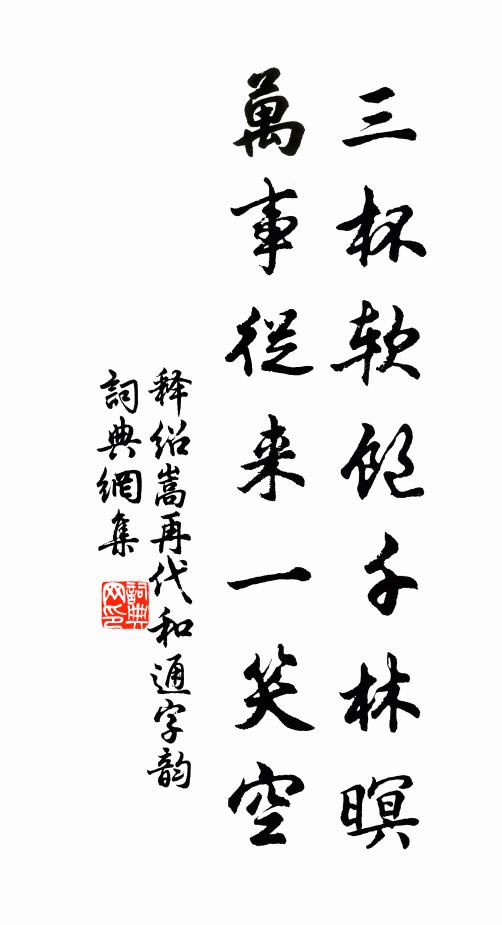 三杯软饱千林暝
萬事從来一笑空
释绍嵩再代和通字韵
詞典網集
詞典网印